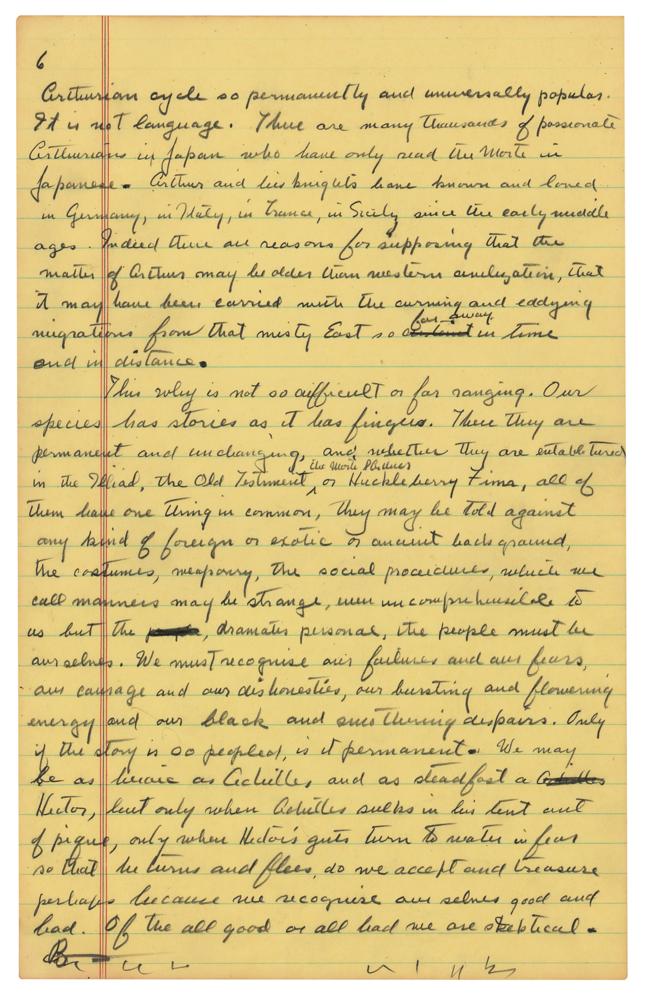 6
Arthurian cycle so permanently and universally popular.
It is not language. There are many thousands of passionate
Arthurians in Japan who have only read the Morte in
Japanese. Arthur and his knights have known and loved
in Germany, in Italy, in France, in Sicily since the early middle
ages. Indeed there are reasons for supposing that the
matter of Arthur may be older than western civilization, that
it may have been carried with the curning and eddying
far-away
migrations from that misty East so distant in time
and in distance.
This why is not so difficult or far ranging. Our
species has stories as it has fingers. There they are
permanent and unchanging, and whether they are
the Morte d'Arthur
in the Illiad, the Old Testiment, or Huckleberry Finn, all of
them have one thing in common, they may be told against
any kind of foreign or exotic or ancient background,
the costumes, weaponry, the social procedures, which we
call manners may be strange, even uncomprehensible to
us but the , dramates personal, the people must be
ourselves. We must recognise our failures and our fears,
our courage and our dishonesties, our bursting and flowering
energy and our black and smothering despairs. Only
if the story is so peopled, is it permanent. We may
be as heroic as Achilles, and as steadfast a Achilles
Hector, but only when Achilles sulks in his tent out
of pique, only when Hector's guts turn to water in fear
so that he turns and flees, do we accept and treasure
perhaps because we recognise our selves good and
bad. Of the all good or all bad we are skeptical.